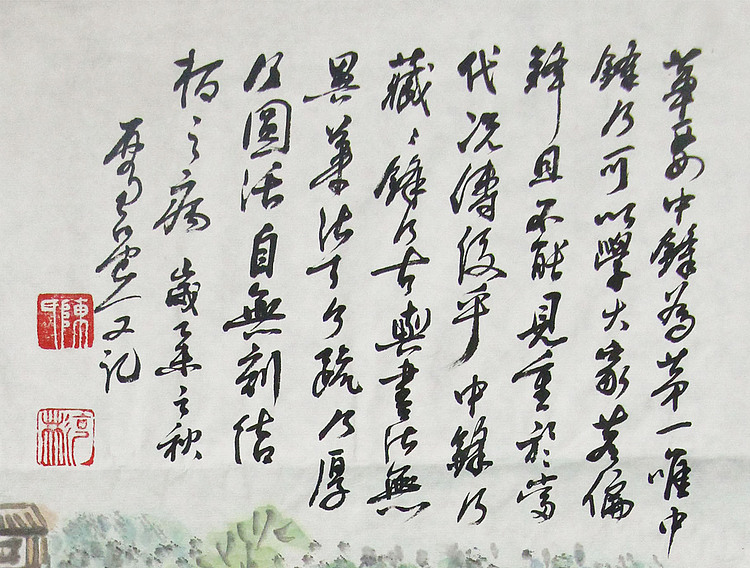 筆要中鋒為第一唯中
鋒乃可以學大家若偏
鋒且不能見重於當
代況傳後乎中鋒乃
藏〻鋒乃古與書法無
異筆法古乃疏乃厚
乃圓活自無刻結
板之病 歲未之秋
又記
陳
河林